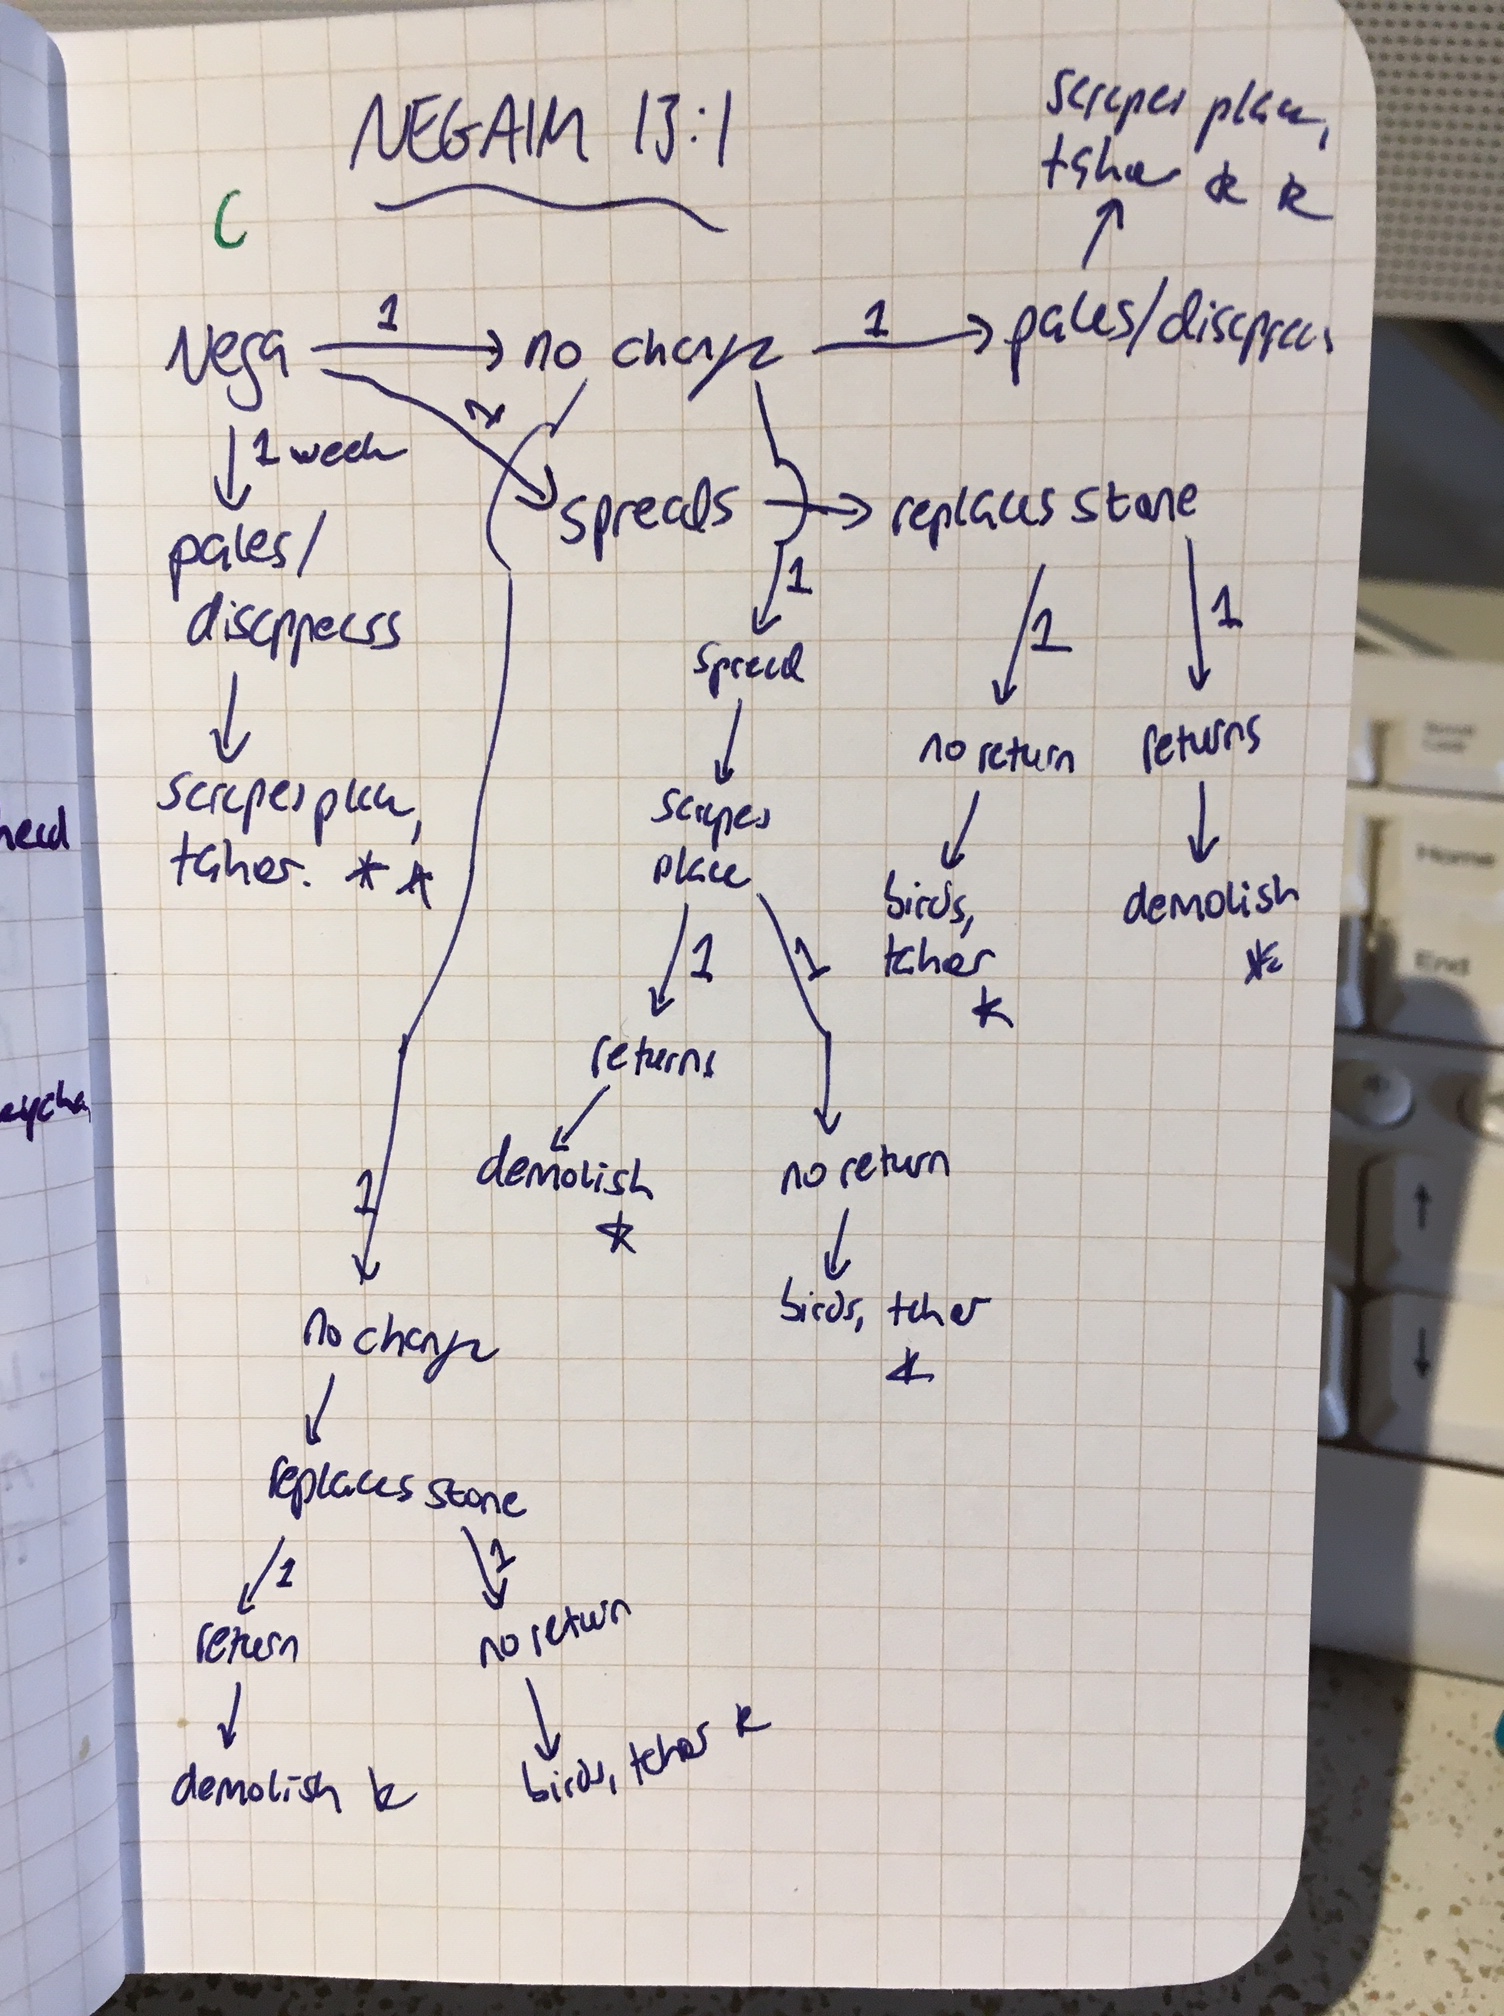 NEGAIM 13:1
C
scrapes place,
taher * *
Nega 1 no change 1 pales/disappears
1
1 week
spreads replaces stone
pales/
disappears
1
spread
1
1
no return
returns
scrapes place,
taher. * *
scrapes
place
birds,
taher
*
demolish
*
1
1
returns
demolish
*
no return
birds, taher
*
1
no change
replaces stone
1
1
return
no return
demolish *
birds, taher *
head
Home
End
↑
↓